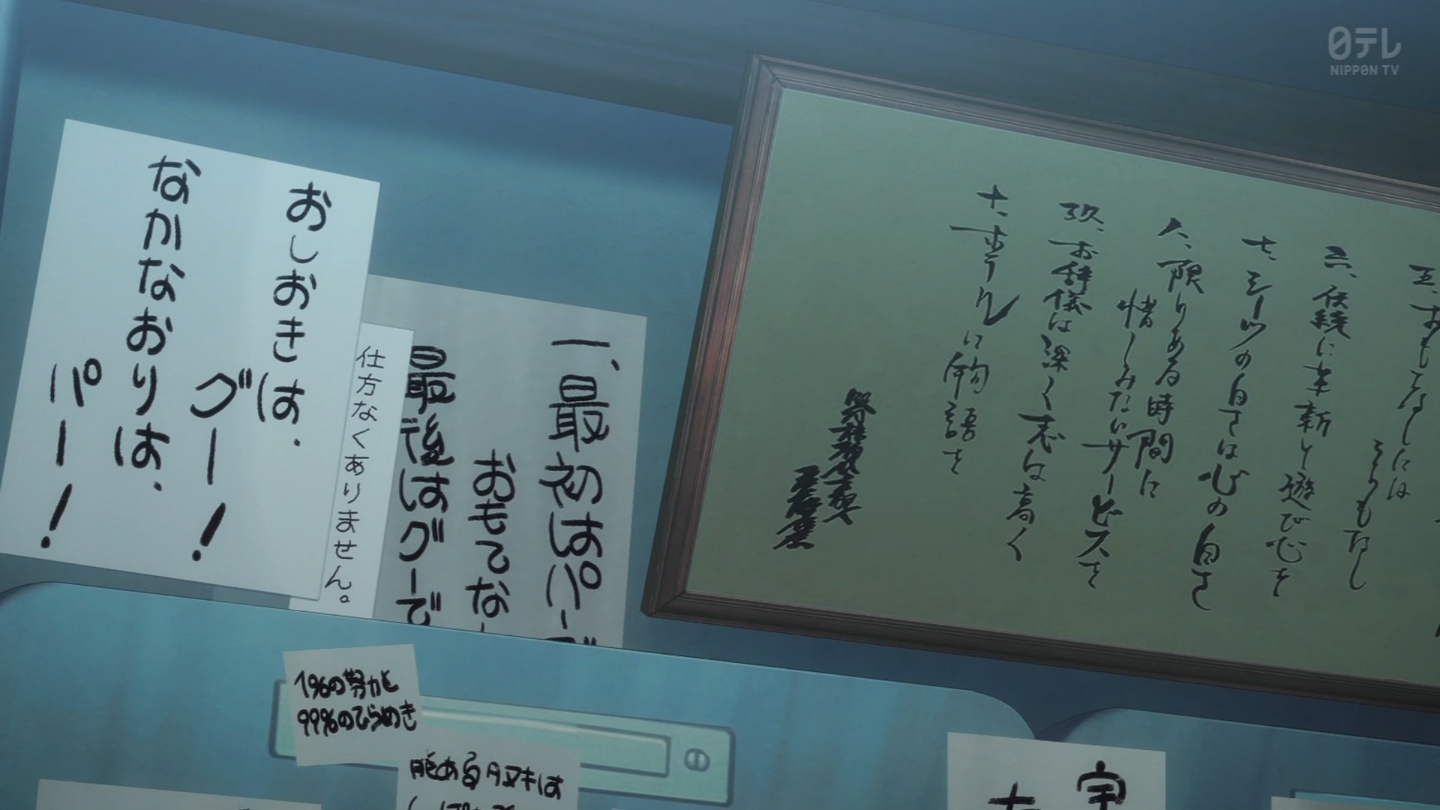 日テレ
NIPPON TV
五、おもてなしには
うらもなし
六、伝統に革新と遊び心を
七、シーツの白さは心の白さ
八、限りある時間に
惜しみないサービスを
玖、お辞儀は深く志は高く
十、ホテルに物語を
一、最初はパーで
おもてな
最後はグーで
仕方なくありません。
おしおきは、
グー！
なかなおりは、
パー！
1%の努力と
99%のひらめき
能あるタヌキは
宇